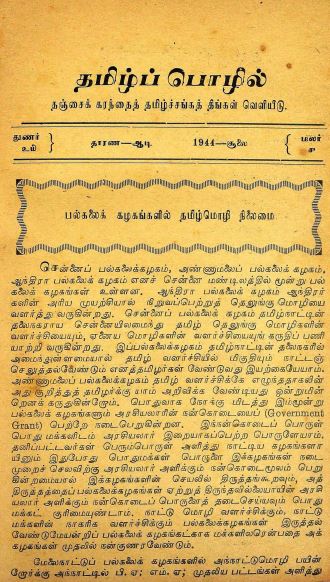 தமிழ்ப் பொழில்
தஞ்சைக் கரந்தைத் தமிழ்ச்சங்கத் திங்கள் வெளியீடு.
துணர் உம் } தாரண—ஆடி 1944—சூலை { மலர் ௪
பல்கலைக் கழகங்களில் தமிழ்மொழி நிலைமை
சென்னைப் பல்கலைக்கழகம், அண்ணாமலைப் பல்கலைக் கழகம்,
ஆந்திரா பல்கலைக் கழகம் எனச் சென்னை மண்டிலத்தில் மூன்று பல்
கலைக் கழகங்கள் உள்ளன. ஆந்திரா பல்கலைக் கழகம் ஆந்திரர்
களின் அரிய முயற்சியால் நிறுவப்பெற்றுத் தெலுங்குமொழியை
வளர்த்து வருகின்றது. சென்னைப் பல்கலைக் கழகம் தமிழ்நாட்டின்
தலைநகராய சென்னையிலமைந்து தமிழ் தெலுங்கு மொழிகளின்
வளர்ச்சியையும், ஏனைய மொழிகளின் வளர்ச்சியையுங் கருதிப் பணி
யாற்றி வருகின்றது. இப்பல்கலைக்கழகம் தமிழ்நாட்டின் தலைநகரில்
அமைந்துள்ளமையால் தமிழ் வளர்ச்சியில் மிகுதியும் நாட்டஞ்
செலுத்தல்வேண்டும் எனத்தமிழர்கள் வேண்டுவது இயற்கையேயாம்.
அண்ணாமலைப் பல்கலைக்கழகம் தமிழ் வளர்ச்சிக்கே எழுந்ததாகலின்
அது குறித்துத் தமிழர்க்கு யாம் அறிவிக்க வேண்டியது ஒன்றுமின்
றெனக் கருதுகின்றோம். பொதுவாக நோக்கு மிடத்து இம்மூன்று
பல்கலைக் கழகங்களும் அரசியலாரின் நன்கொடையைப் (Government
Grant) பெற்றே நடைபெறுகின்றன. இந்நன்கொடைப் பொருள்
பொது மக்களிடம் அரசியலார் இறையாகப்பெற்ற பொருளேயாம்.
தனிப்பட்டவர்கள் பெரும்பொருள் அளித்து நாட்டிய கழகங்களா
யினும் இப்போது பொதுமக்கள் பொருளே இக்கழகங்கள் நடை
முறைச் செலவிற்கு அரசியலார் அளிக்கும் நன்கொடைமூலம் பெறு
கின்றமையால் இக்கழகங்களின் செயலில் திருத்தங்கூறவும், அத்
திருத்தத்தைப் பல்கலைக்கழகங்கள் ஏற்றுத் திருந்தவில்லையாயின் அரசி
யலார் அளிக்கும் நன்கொடைப் பொருளைத் தடைசெய்யவும் பொது
மக்கட் குரிமையுண்டாம். நாட்டு மொழி வளர்ச்சிக்கும், நாட்டு
மக்களின் நாகரிக வளர்ச்சிக்கும் பல்கலைக்கழகங்கள் இருத்தல்
வேண்டுமேயன்றிப் பல்கலைக் கழகங்கட்காக மக்களிலரென்பதை அக்
கழகங்கள் முதலில் நன்குணரவேண்டும்.
மேலைநாட்டுப் பல்கலைக் கழகங்களில் அந்நாட்டுமொழி பயின்
றோர்க்கு அந்நாட்டில் பி. ஏ; எம். ஏ; முதலிய பட்டங்கள் அளித்து